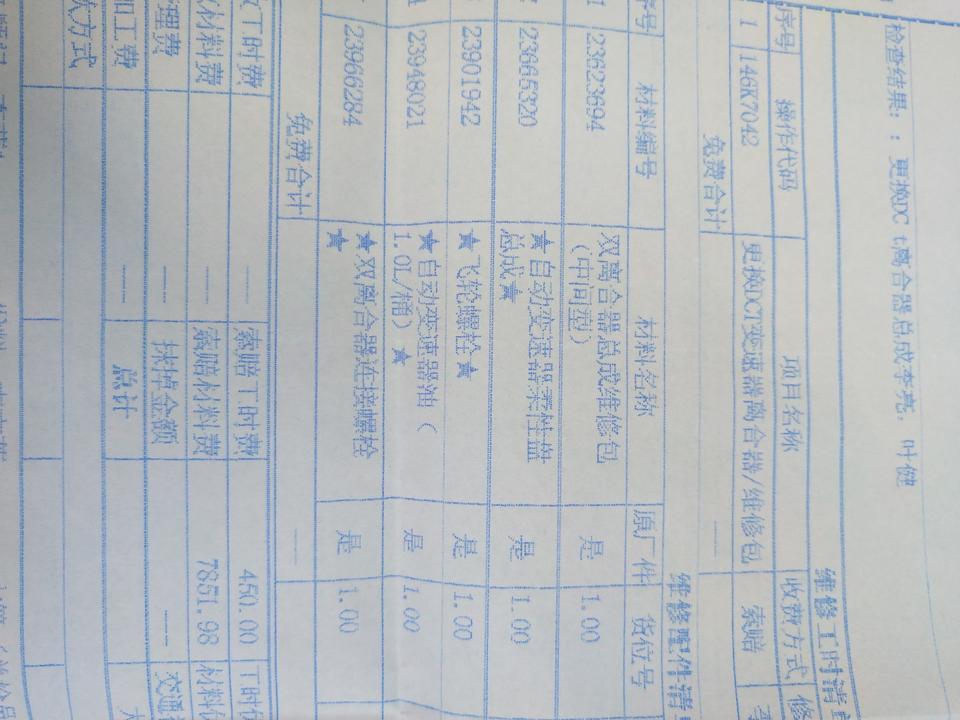 检查结果：：更换DCt离合器总成李亮，叶健
维修工时清
序号 操作代码 项目名称 收费方式 修
1 146K7042 更换DCT变速器离合器/维修包 索赔
免费合计 ——
维修配件清
序号 材料编号 材料名称 原厂件 货位号
23623694 双离合器总成维修包（中间型） 是 1.00
23665320 ★自动变速器柔性盘总成★ 是 1.00
23901942 ★飞轮螺栓★ 是 1.00
23948021 ★自动变速器油（1.0L/桶）★ 是 1.00
23966284 ★双离合器连接螺栓★ 是 1.00
免费合计 ——
工时费 —— 索赔工时费 450.00 工时
材料费 —— 索赔材料费 7851.98 材料
理费 —— 抹掉金额 —— 交通
加工费 —— 总计
方式